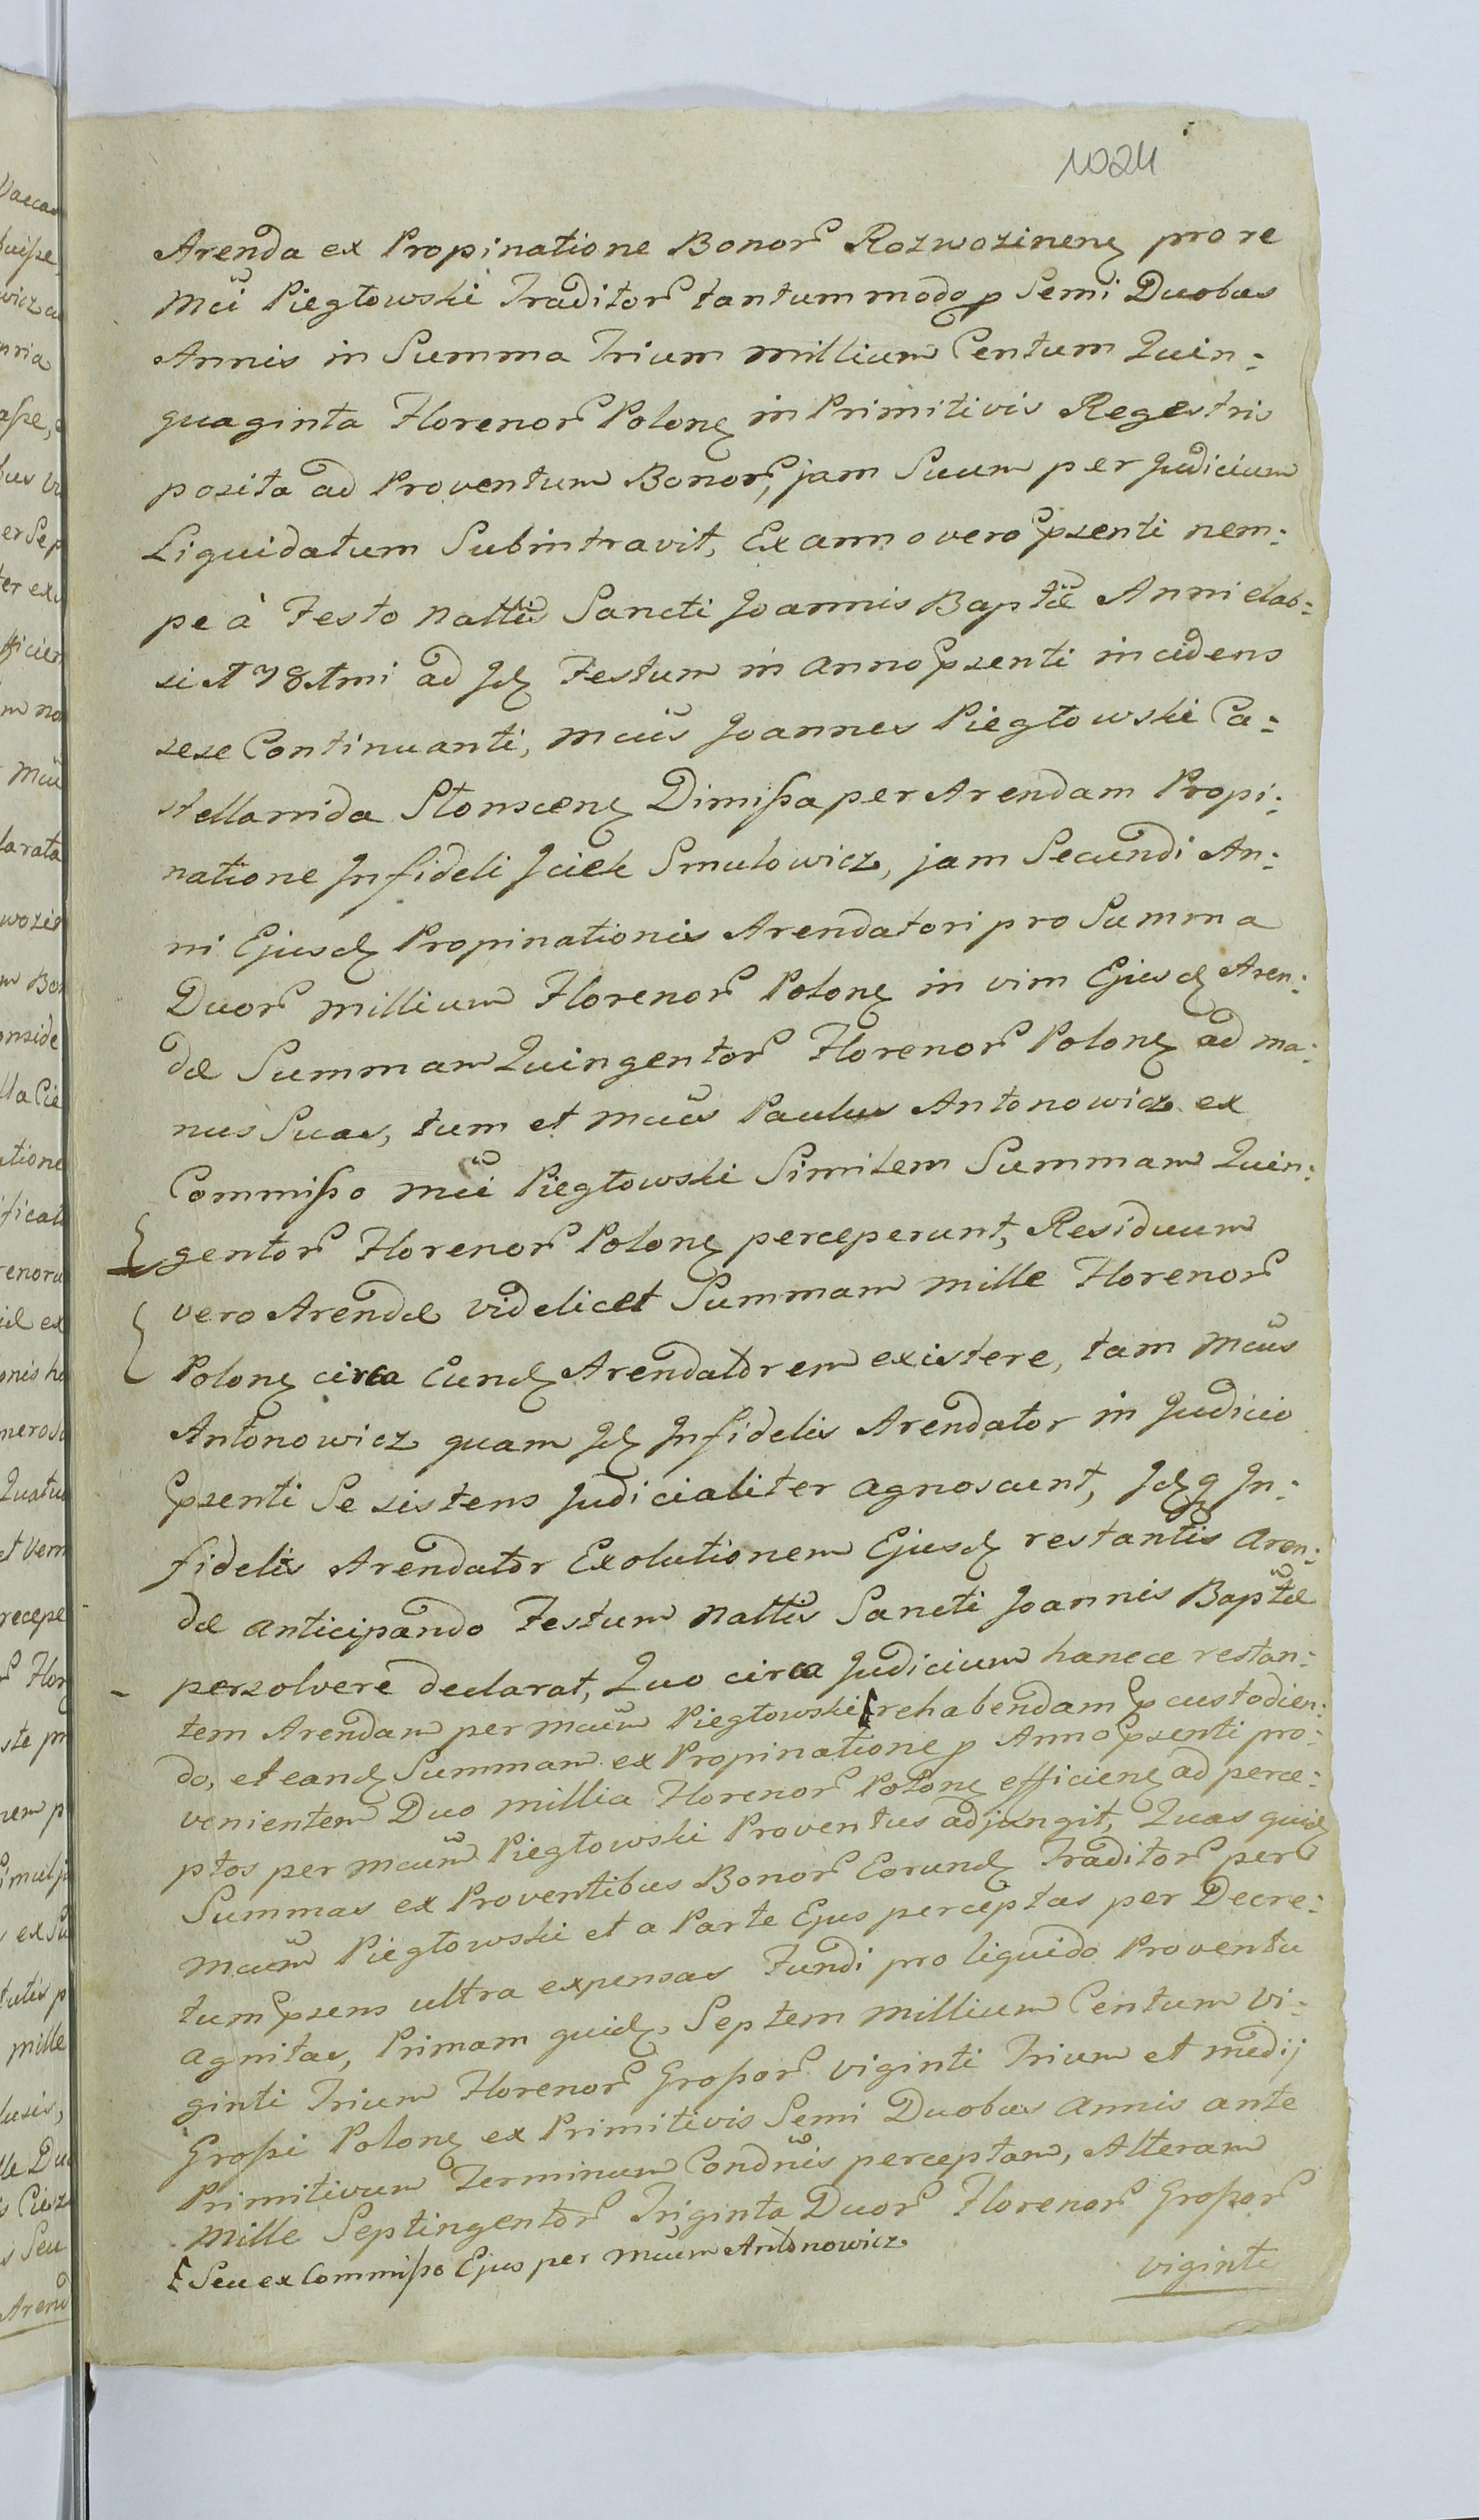 1024
Arenda ex Propinatione Bonor Rozwozinen pro re
Mci Piegłowski Traditor tantummodo p Semi Duobus
Annis in Summa Trium millium Centum Quin:
quaginta Florenor Polon in Primitivis Regestris
posita ad Proventum Bonor, jam Suum per Judicium
Liquidatum Subintravit, Ex anno vero Psenti nem:
pe à Festo Nattis Sancti Joannis Baptæ Anni elab:
si 1781mi ad Jd Festum in anno Psenti incidens
sese Continuanti, Mcus Joannes Piegłowski Ca:
stellanida Słonscen Dimissa per Arendam Propi:
natione Infideli Jciek Smulowicz, jam Secundi An:
ni Ejusd Propinationis Arendatori pro Summa
Duor millium Florenor Polon in vim Ejusd Aren:
dæ Summam Quingentor Florenor Polon ad ma:
nus Suas, tum et Mcus Paulus Antonowicz ex
Commisso Mci Piegłowski Similem Summam Quin:
gentor Florenor Polon perceperunt, Residuum
vero Arendæ videlicet Summam mille Florenor
Polon circa Eund Arendatorem existere, tam Mcus
Antonowicz quam Jd Infidelis Arendator in Judicio
Psenti Se sistens Judicialiter agnoscunt, Jdq In:
fidelis Arendator Exolutionem Ejusd restantis Aren:
dæ anticipando Festum Nattis Sancti Joannis Baptæ
persolvere declarat, Quo circa Judicium hancce restan:
tem Arendam per Mcum Piegłowski rehabendam P custodien:
do, et eand Summam ex Propinatione p Anno Psenti pro:
venientem Duo millia Florenor Polon efficien ad perce:
ptos per Mcum Piegłowski Proventus adjungit, Quas quid
Summas ex Proventibus Bonor Eorund Traditor per
Mcum Piegłowski et a Parte Ejus perceptas per Decre:
tum Psens ultra expensas Fundi pro liquido Proventu
agnitas, Primam quid, Septem millium Centum Vi:
ginti Trium Florenor Grossor viginti Trium et medij
Grossi Polon ex Primitivis Semi Duobus annis ante
Primitivum Terminum Condnis perceptam, Alteram
Mille Septingentor Triginta Duor Florenor Grossor
Seu ex Commisso Ejus per Mcum Antonowicz
viginti